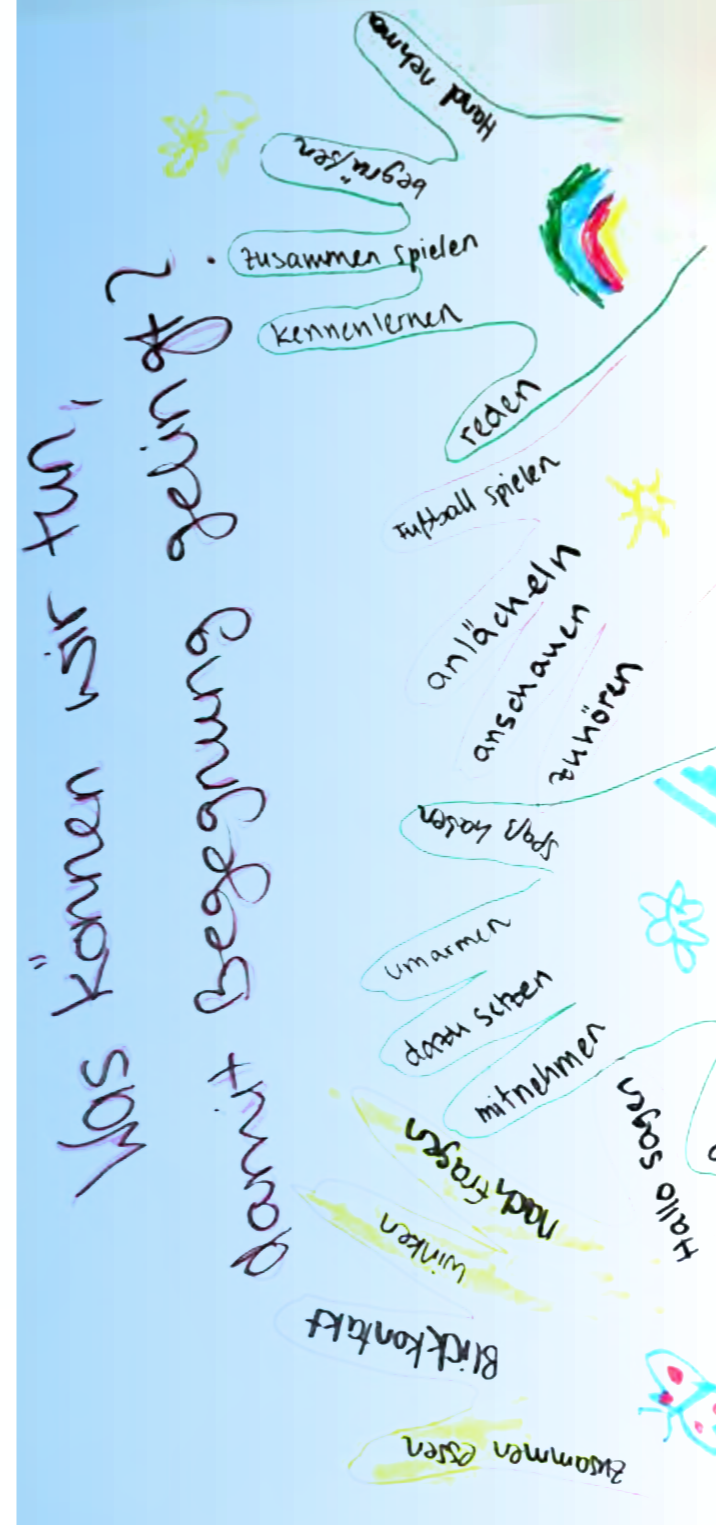 Was können wir tun,
damit Begegnung gelingt?
Hand nehmen
begrüßen
zusammen spielen
kennenlernen
reden
Fußball spielen
anlächeln
anschauen
zuhören
Spaß haben
umarmen
dazu setzen
mitnehmen
Hallo sagen
nachfragen
winken
Blickkontakt
zusammen essen